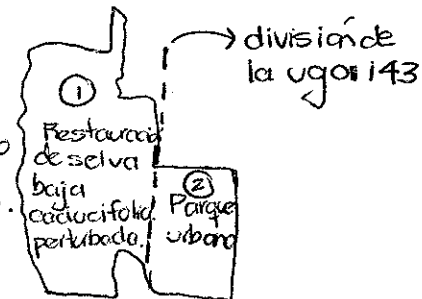 división de
la ugor i43
①
Restauració
de selva
baja
caducifolia
perturbada.
②
Parque
urbano